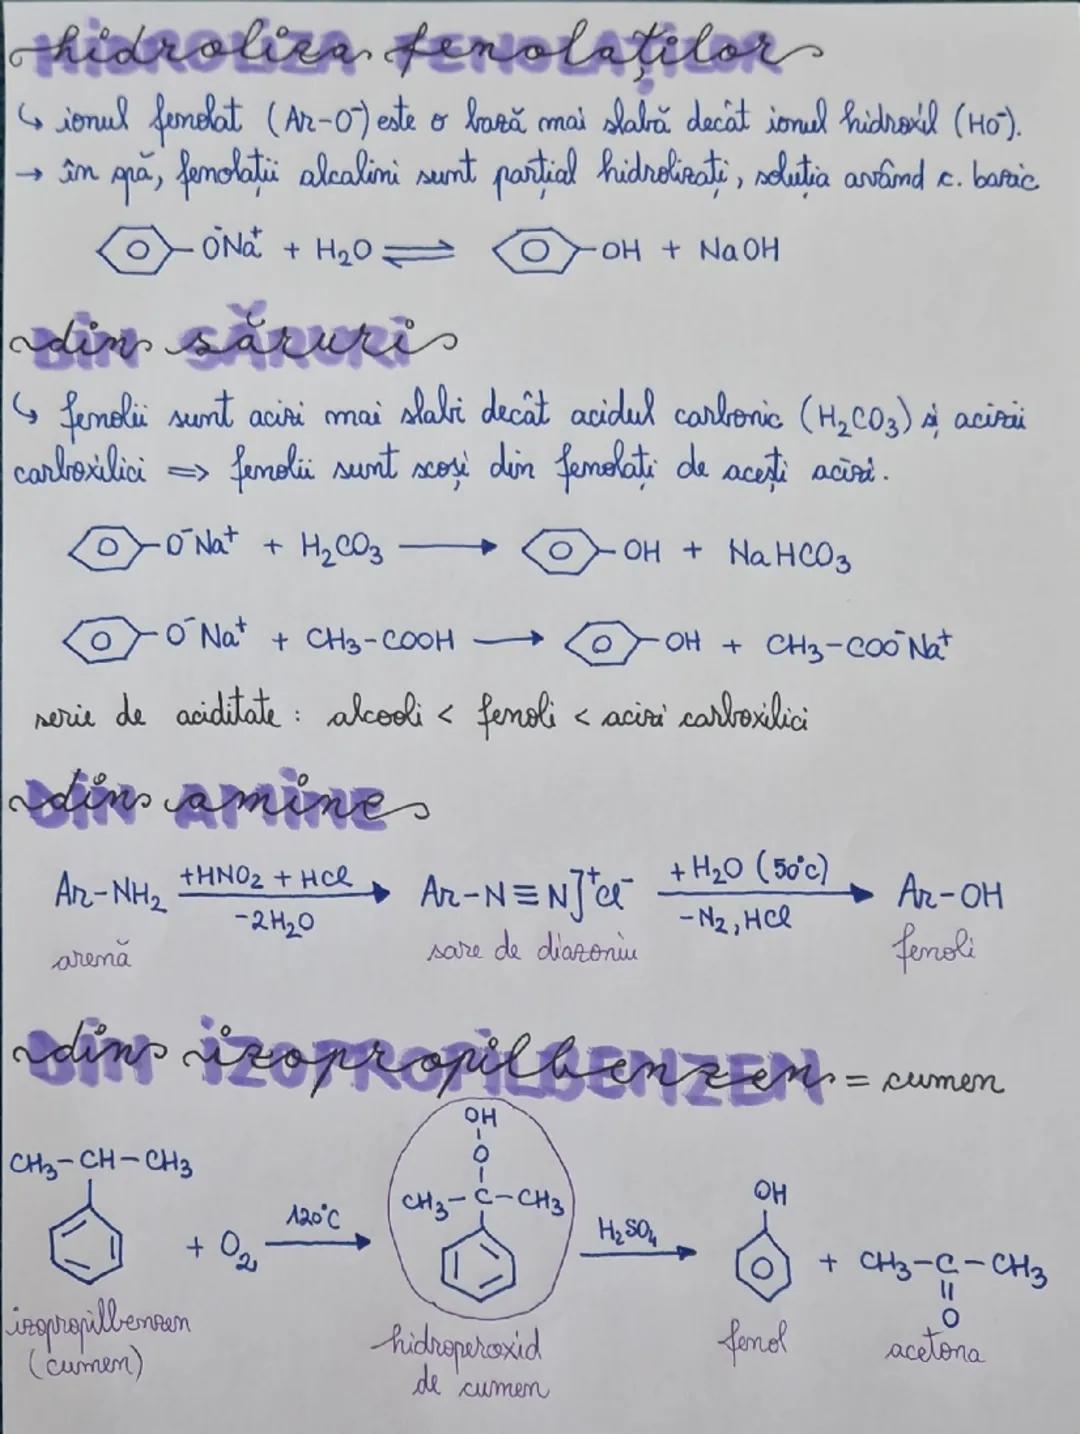 hidroliza fenolaților
↳ ionul fenolat (Ar-O⁻) este o bază mai slabă decât ionul hidroxil (HO⁻).
→ în apă, fenolații alcalini sunt parțial hidrolizați, soluția având c. bazic
O⁻Na⁺ + H₂O ⇌ OH + NaOH
din săruri
↳ fenolii sunt acizi mai slabi decât acidul carbonic (H₂CO₃) și acizii
carboxilici => fenolii sunt scoși din fenolați de acești acizi.
O⁻Na⁺ + H₂CO₃ → OH + NaHCO₃
O⁻Na⁺ + CH₃-COOH → OH + CH₃-COO⁻Na⁺
serie de aciditate : alcooli < fenoli < acizi carboxilici
din amine
Ar-NH₂ +HNO₂ + HCl → Ar-N≡N]⁺Cl⁻ + H₂O (50°C) → Ar-OH
-2H₂O -N₂, HCl
arenă sare de diazoniu fenoli
din izopropilbenzen = cumen
OH
O
CH₃-CH-CH₃ CH₃-C-CH₃ OH
+ O₂ 120°C → H₂SO₄ → + CH₃-C-CH₃
O
izopropilbenzen hidroperoxid fenol acetona
(cumen) de cumen